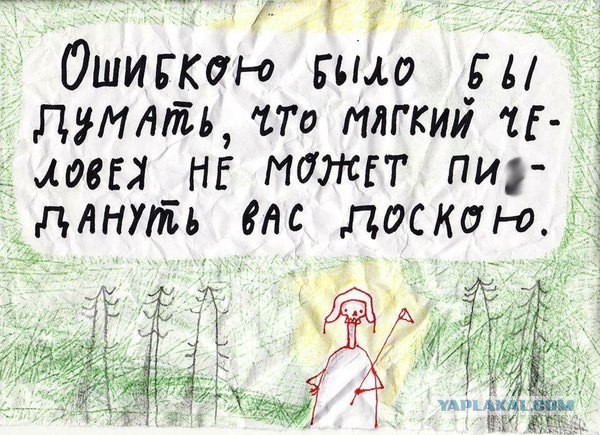 Ошибкою было бы
думать, что мягкий че-
ловек не может пи -
дануть вас доскою.
YAPLAKAL.COM